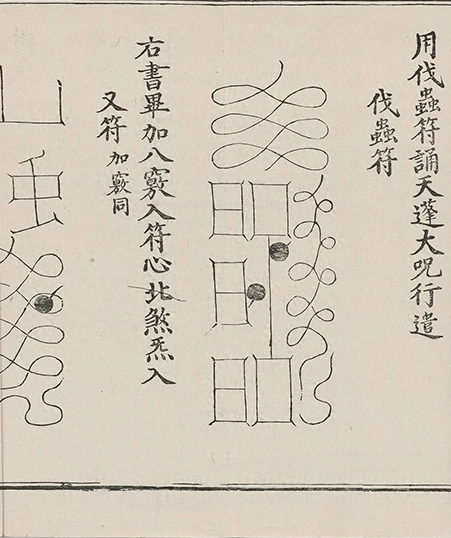 用伐蟲符誦天蓬大咒行遣
伐蟲符
右書畢加八竅入符心北煞炁入
又符加竅同